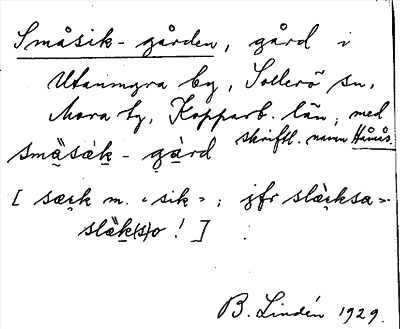 Småsik-gården, gård i
Utanmyra by, Sollerö sn,
Mora tg, Kopparb. län; med
skriftl. namn Hånås.
smäsäk-gård
[ sæck m. "sik"; jfr släcksa=
släk(s)o ! ]
B. Lindén 1929.